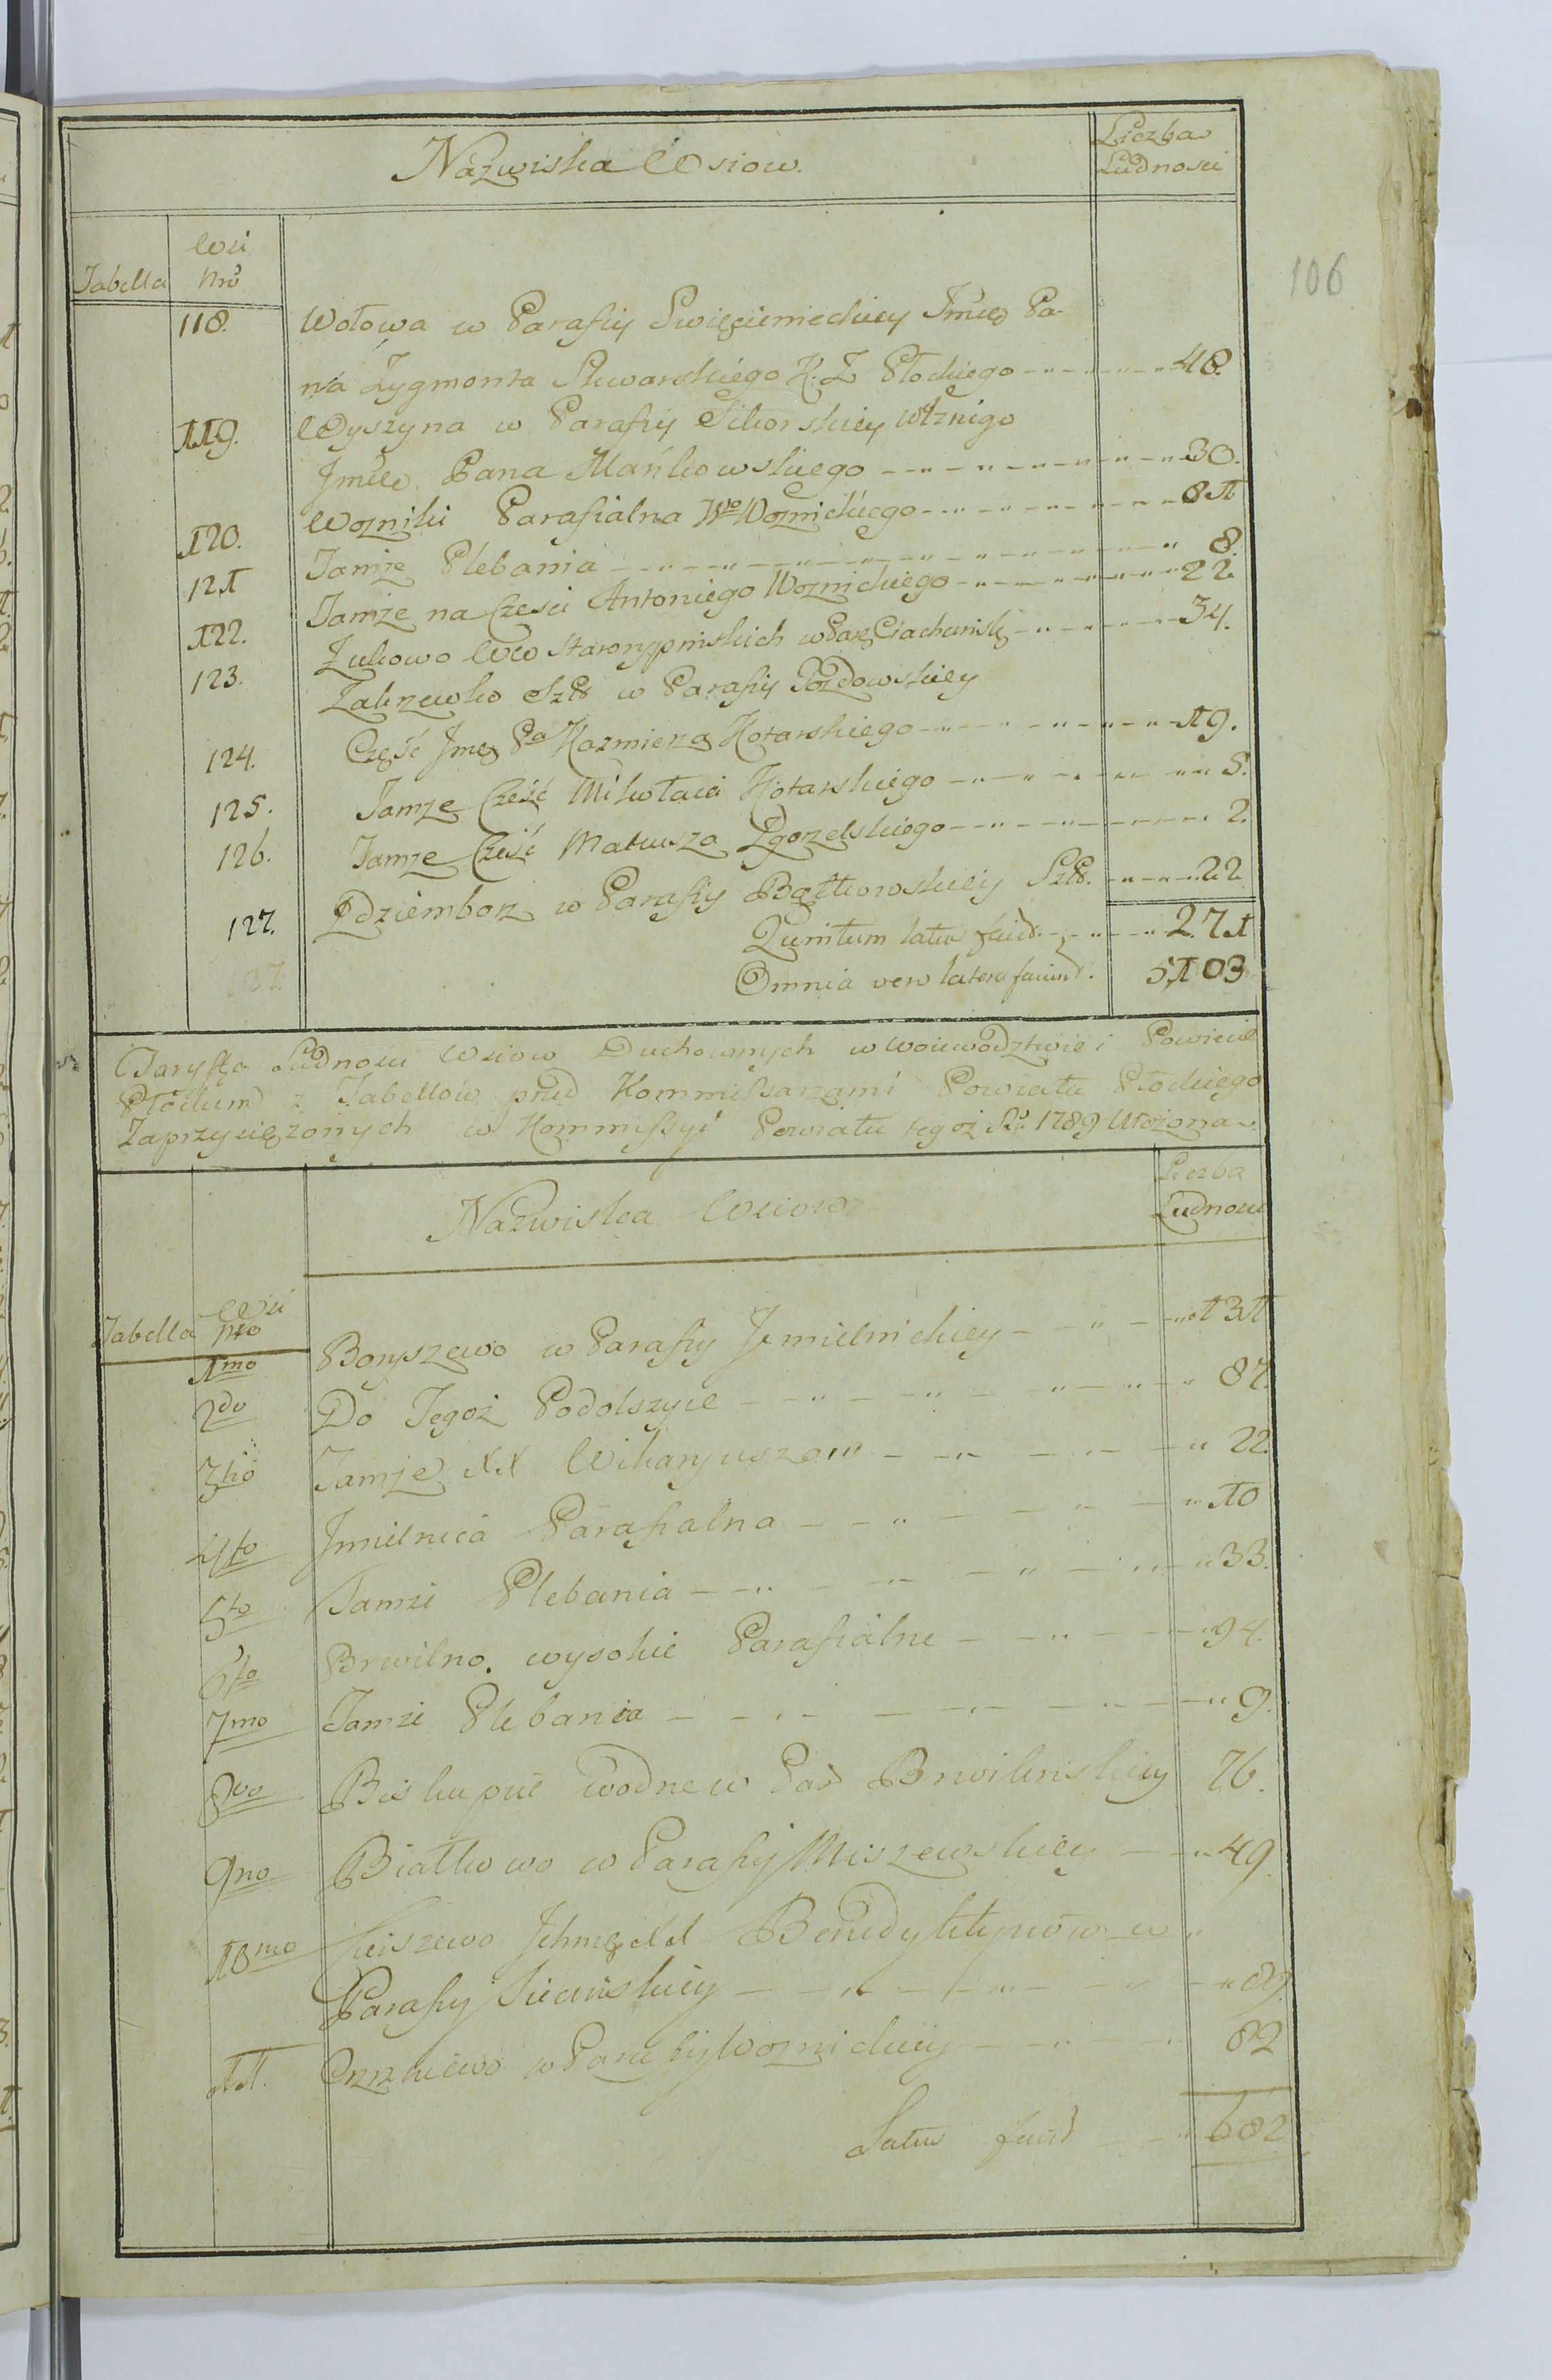 106
Nazwiska Wsiow.
Liczba
Ludnosci
Tabella
Wsi
Nro
118. Wołowa w Parafiy Swięcienieckiey Jmci Pa-
na Zygmonta Skwarskiego K: Z Płockiego 48.
119. Wyszyna w Parafiy Sikorskiey
Jmci Pana Mańkowskiego 30.
120. Wozniki Parafialna Wo Woznickiego 81
121 Tamże Plebania 8.
122. Tamże na Czesci Antoniego Woznickiego 22
123. Żukowo WW Staroźrebskich w Par Ciachcinski 34.
Zakrzewko Szl w Parafiy Rozdowskiey
124. Część Jmę Pa Kazmierza Kotarskiego 19.
125. Tamże Część Mikołaia Kotarskiego 5.
126. Tamże Część Mateusza Zgorzelskiego 2.
127. Zdziemborz w Parafiy Bądkowskiey Szl. 22
Quintum latus facid 271
Omnia vero latera faciund. 5,103
Taryffa Ludnosci Wsiow Duchownych w Woiewodztwie i Powiecie
Płockim z Tabellów przed Kommissarzami Powiatu Płockiego
Zaprzysięzonych w Kommissyi Powiatu tegoż Ru 1789 Ułożona
Nazwiska Wsiow
Liczba
Ludnosci
Tabella
Wsi
Nro
1mo Boryszewo w Parafiy Jmielnickiey 131
2do Do Tegoż Podolszyce 87.
3tio Tamże XX Wikaryuszow 22.
4to Jmielnica Parafialna 10
5to Tamże Plebania 33.
6to Brwilno wysokie Parafialne 94.
7mo Tamże Plebania 9.
8vo Biskupie wodne w Par Brwilinskiey 76.
9no Białkowo w Parafiy Miszewskiey 49.
10mo Jchmę XX Benedyktynów w
Parafiy Siecinskiey 89.
11. w Parafiy Woznickiey 82
Latus facid 682